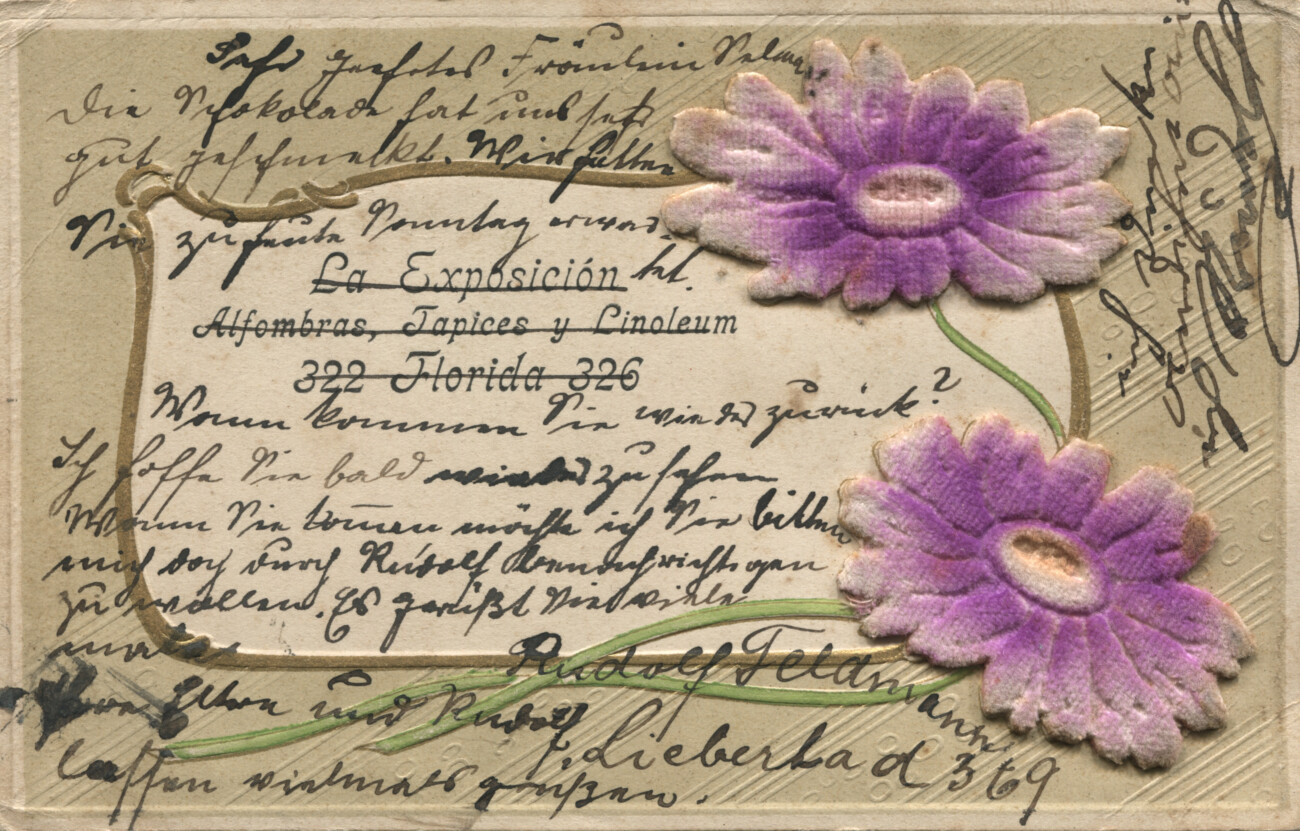 Sehr geehrtes Fräulein Selma
Die Schokolade hat uns sehr
gut geschmekt. Wir hatten
Sie zu heute Sonntag erwar-
tet.
La Exposición
Alfombras, Tapices y Linoleum
322 Florida 326
Wann kommen Sie wieder zurück?
Ich hoffe Sie bald wieder zu sehen
Wenn Sie kom̅en möchte ich Sie bitten
mich doch durch Rudolf benachrichtigen
zu wollen. Es grüßt Sie viele
male
Rudolf Feldmann
Ihre Eltern und Rudolf
f. Liebertad 369
lassen vielmals grüßen.